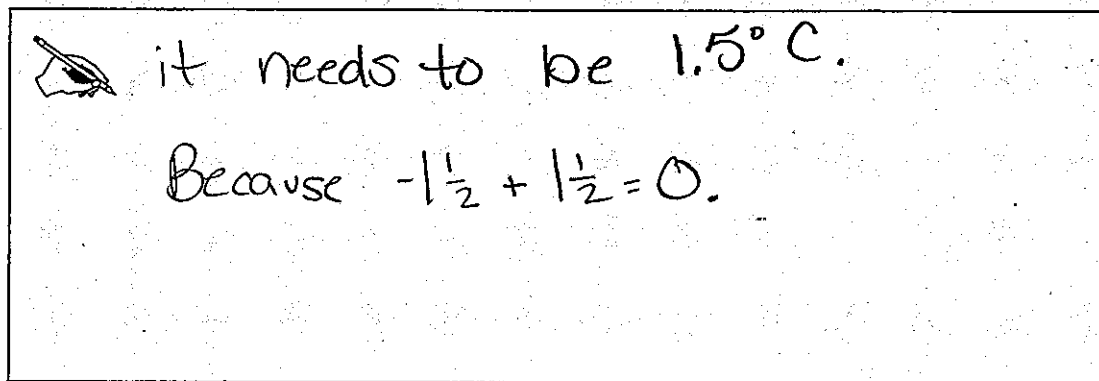 it needs to be 1.5° C.
Because -1 1/2 + 1 1/2 = 0.